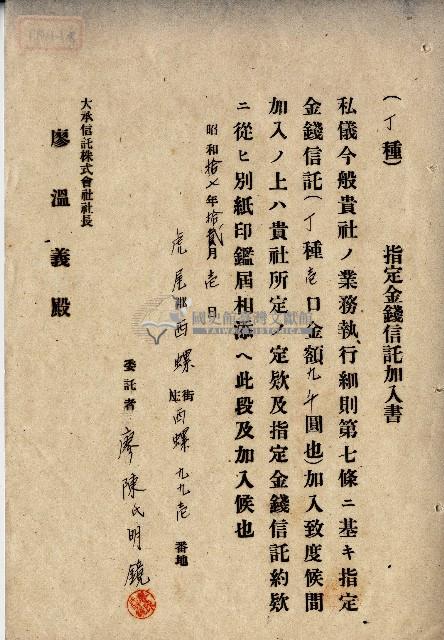 (丁種)　指定金錢信託加入書
私儀今般貴社ノ業務執行細則第七條ニ基キ指定
金錢信託(丁種壱口金額九千圓也)加入致度候間
加入ノ上ハ貴社所定ノ定欵及指定金錢信託約欵
ニ從ヒ別紙印鑑屆相添ヘ此段及加入候也
昭和拾七年拾貳月壱日
虎尾郡西螺街庄西螺九九壱番地
委託者 廖陳氏明鏡
大承信託株式會社社長
廖溫義殿
國史館臺灣文獻館
TAIWAN HISTORICA